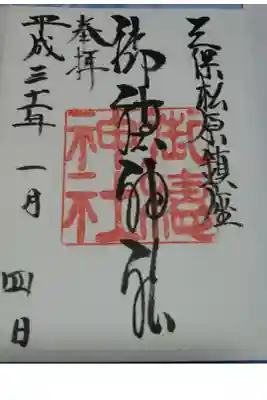 三保松原鎮座
奉拝
御穂神社
御穂神社
平成三十一年一月四日